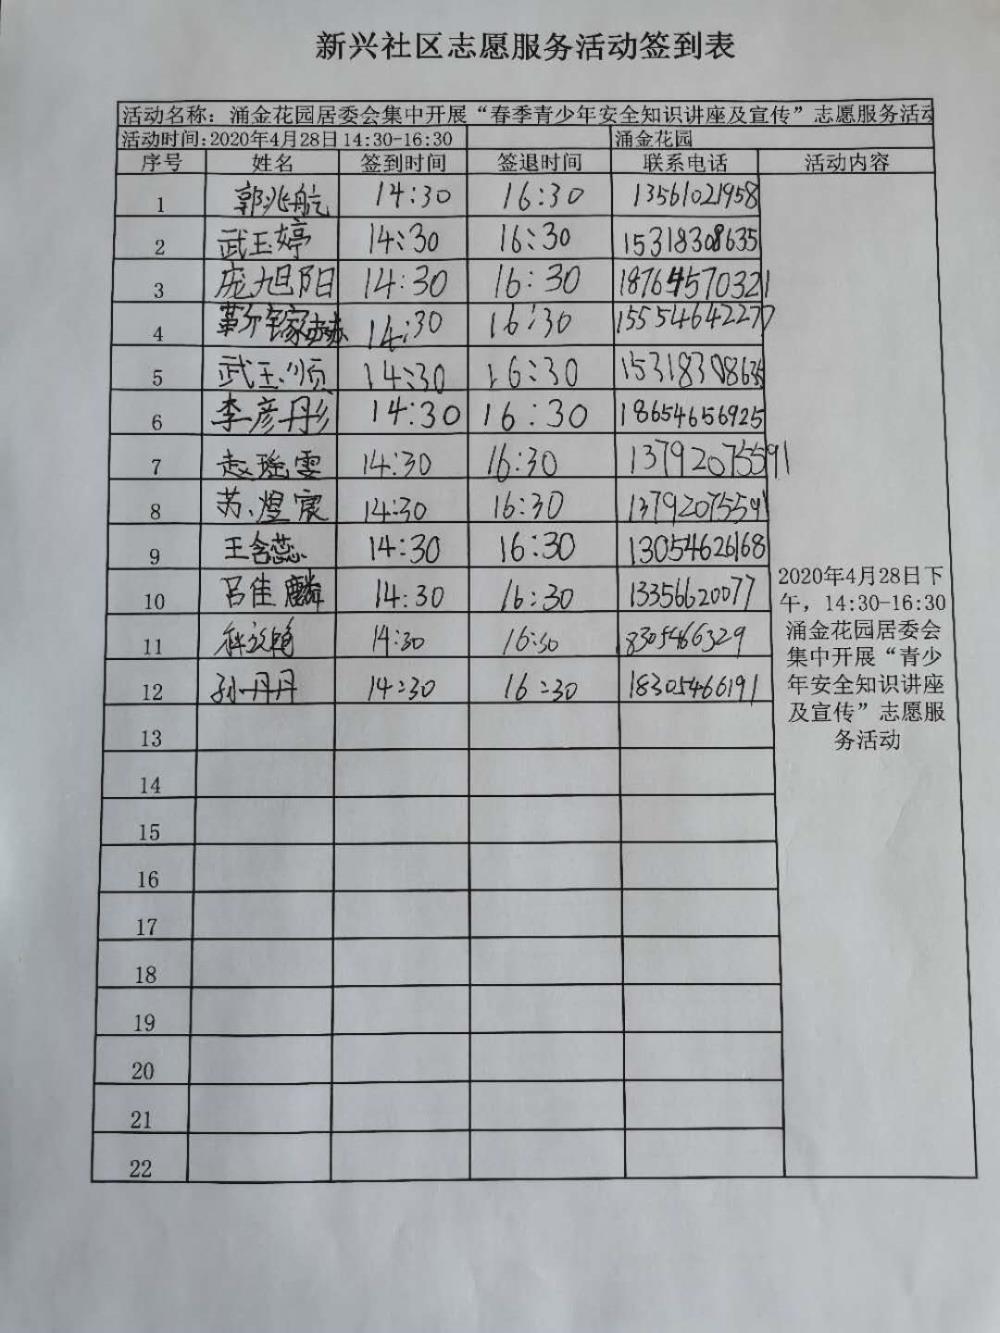 新兴社区志愿服务活动签到表
活动名称：涌金花园居委会集中开展“春季青少年安全知识讲座及宣传”志愿服务活动
活动时间:2020年4月28日14:30-16:30 涌金花园
序号 姓名 签到时间 签退时间 联系电话 活动内容
1 郭兆航 14:30 16:30 13561021958
2 武玉婷 14:30 16:30 15318308635
3 庞旭阳 14:30 16:30 18764570321
4 14:30 16:30 15554642277
5 武玉顺 14:30 16:30 15318308635
6 李彦彤 14:30 16:30 18654656925
7 赵瑞雯 14:30 16:30 13792075591
8 苏煜宸 14:30 16:30 13792075591
9 王含蕊 14:30 16:30 13054626168
10 吕佳麟 14:30 16:30 13356620077
11 14:30 16:30 8305466329
12 孙丹丹 14:30 16:30 18305466191
2020年4月28日下
午，14:30-16:30
涌金花园居委会
集中开展“青少
年安全知识讲座
及宣传”志愿服
务活动
13
14
15
16
17
18
19
20
21
22